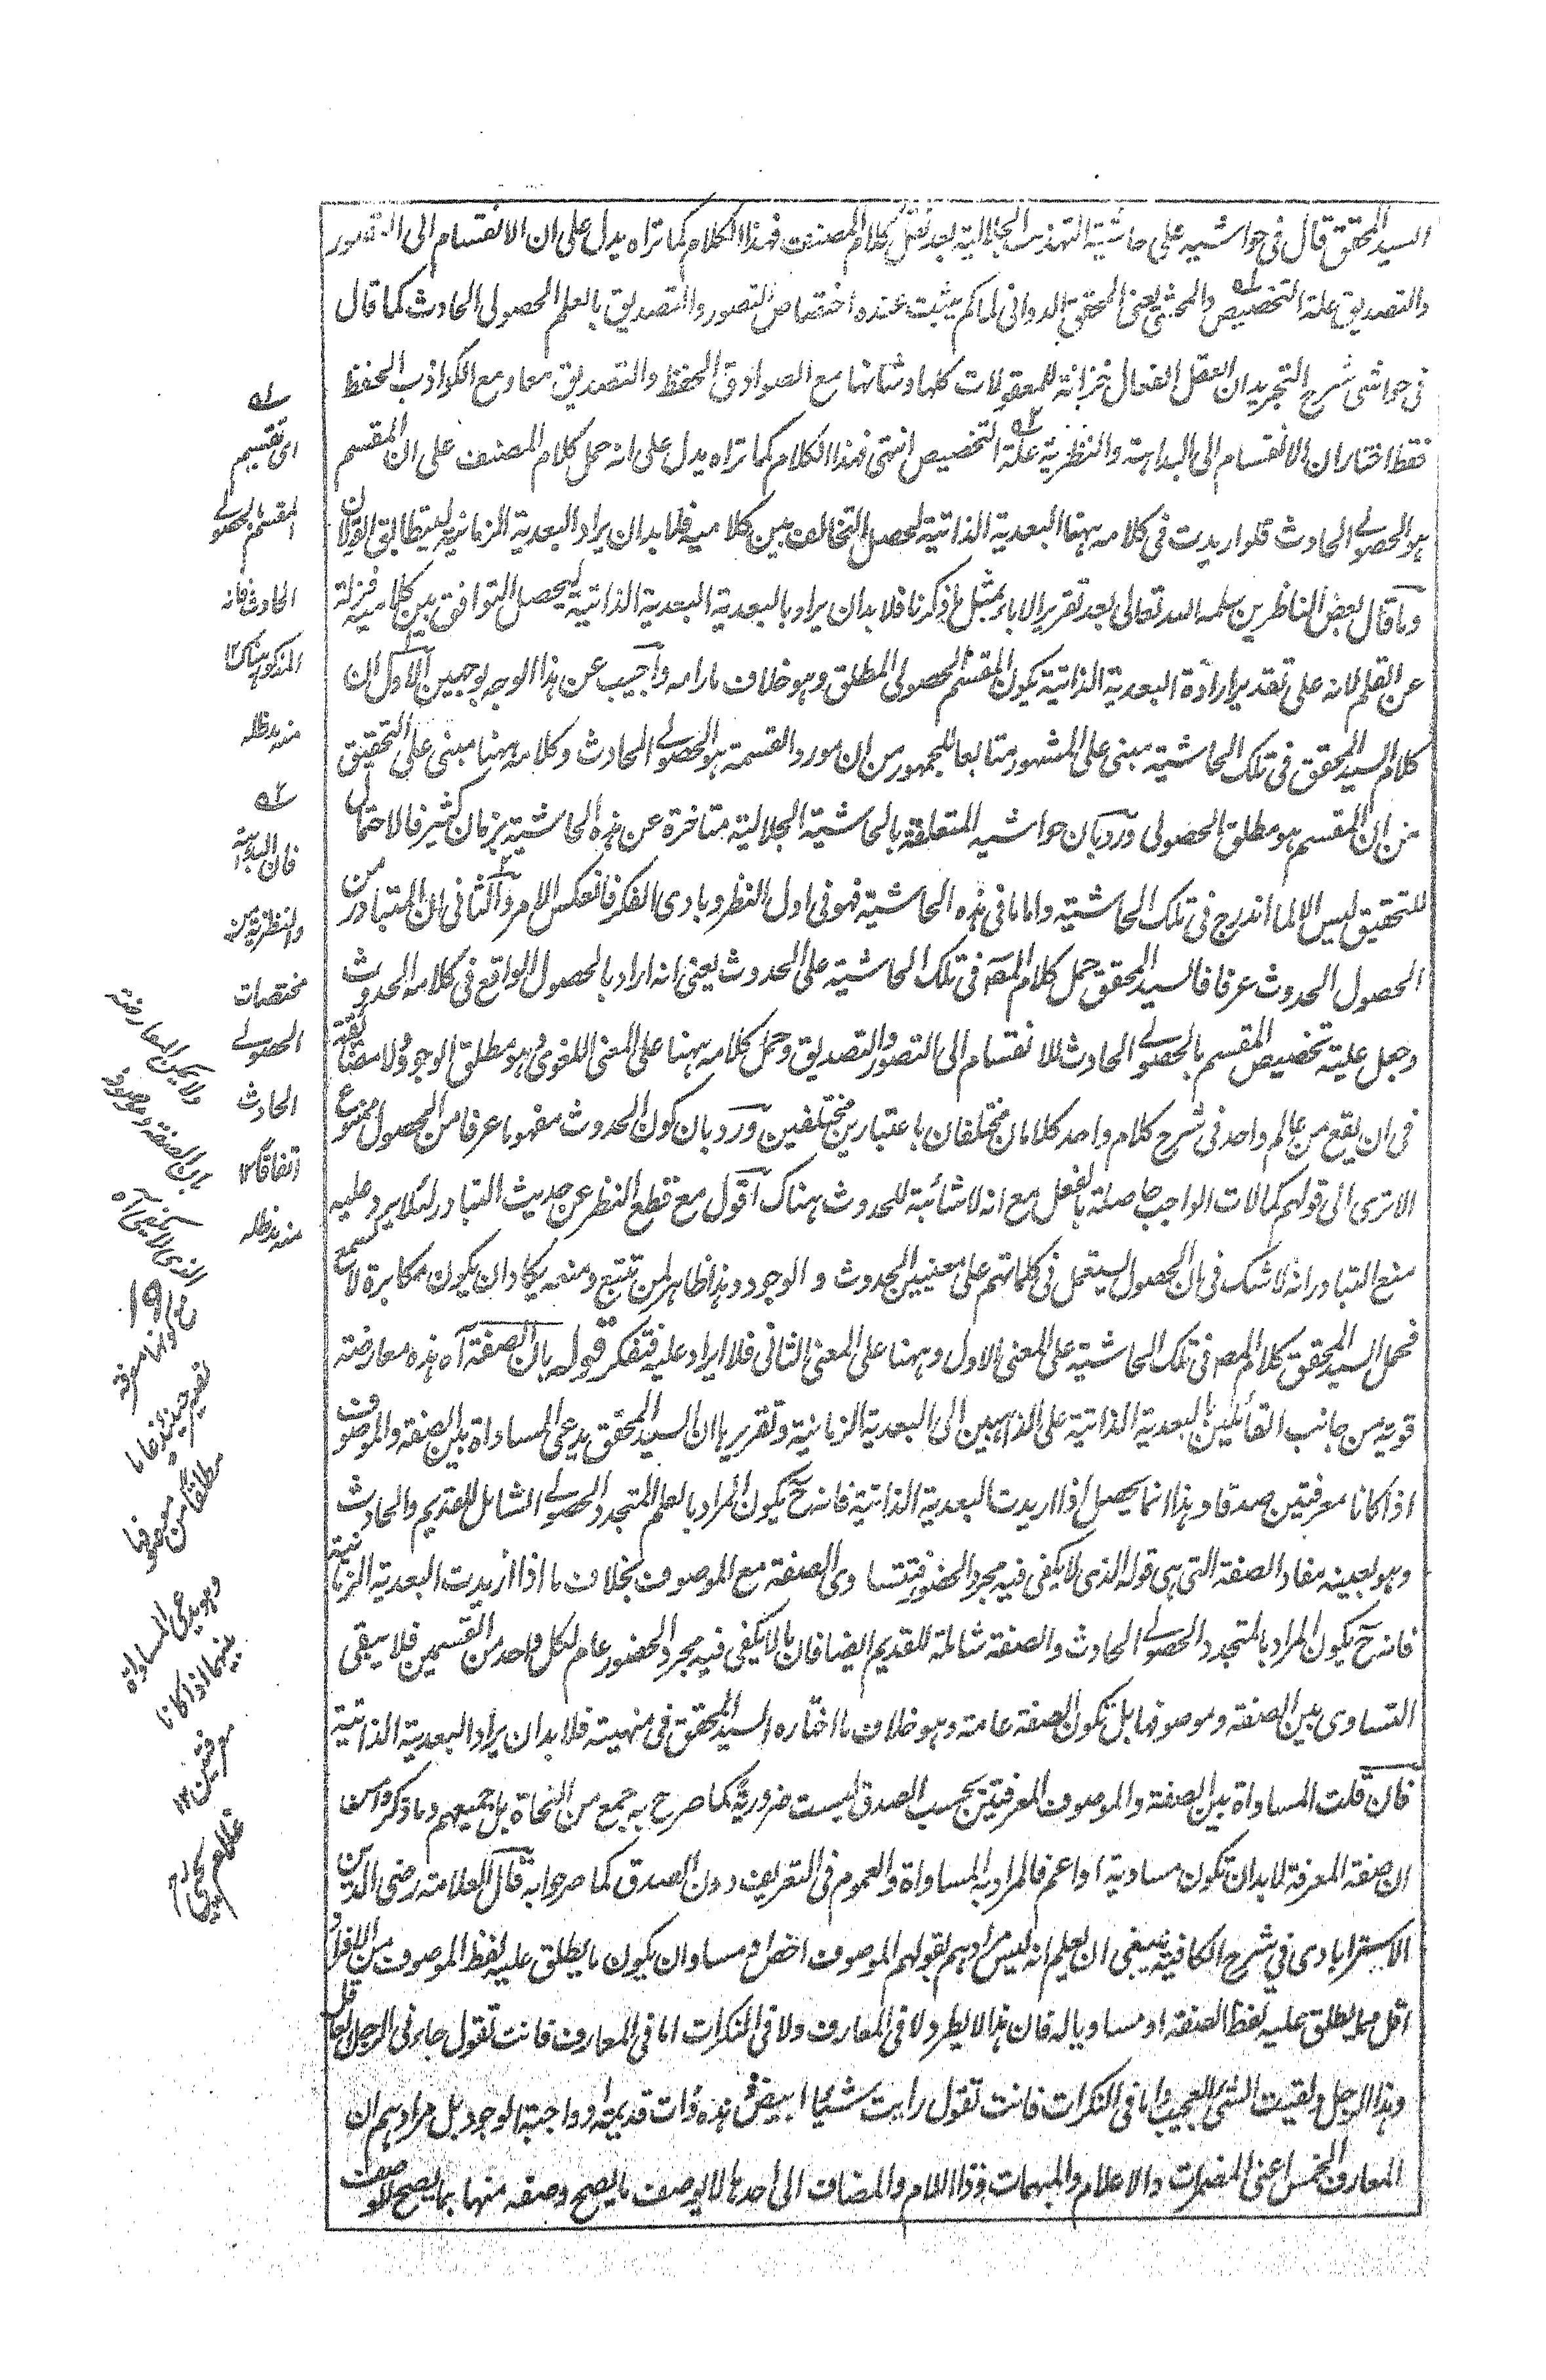 السيد المحقق قال فى حواشيه على حاشية التهذيب الجلالية بعد نقل كلام المصنف فهذا الكلام كما تراه يدل على ان الانقسام الى التصور
والتصديق علة التخصيص والمحشى يعنى المحقق الدوانى لما لم يثبت عنده اختصاص التصور والتصديق بالعلم الحصولى الحادث كما قال
فى حواشى شرح التجريد ان العقل الفعال خزانة للمعقولات كلها وشانها مع الصوادق الحفظ والتصديق معا ومع الكواذب الحفظ
فقط اختار ان الانقسام الى البداهة والنظرية علة التخصيص انتهى فهذا الكلام كما تراه يدل على انه حمل كلام المصنف على ان المقسم
هو الحصولى الحادث فلو اريدت فى كلامه ههنا البعدية الذاتية لحصل التخالف بين كلاميه فلا بد ان يراد البعدية الزمانية ليتطابق القولان
وما قال بعض الناظرين سلمه الله تعالى بعد تقرير الايراد بمثل ما ذكرنا فلا بد ان يراد بالبعدية البعدية الذاتية ليحصل التوافق بين كلاميه فزلة
عن القلم لانه على تقدير ارادة البعدية الذاتية يكون المقسم الحصولى المطلق وهو خلاف مارامه وأجيب عن هذا الوجه بوجهين الاول ان
كلام السيد المحقق فى تلك الحاشية مبنى على المشهور متابعا للجمهور من ان مورد القسمة هو الحصولى الحادث وكلامه ههنا مبنى على التحقيق
من ان المقسم هو مطلق الحصولى ورد بان حواشيه المتعلقة بالحاشية الجلالية متاخرة عن هذه الحاشية بزمان كثير فالاحتمال
للتحقيق ليس الا لما اندرج فى تلك الحاشية واما ما فى هذه الحاشية فهو فى اول النظر وبادى الفكر فانعكس الامر والثانى ان المتبادر من
الحصول الحدوث عرفا فالسيد المحقق حمل كلام المصـ فى تلك الحاشية على الحدوث يعنى انه اراد بالحصول الواقع فى كلامه الحدوث
وجعل علية تخصيص المقسم بالحصولى الحادث للانقسام الى التصور والتصديق وحمل كلامه ههنا على المعنى اللغوى وهو مطلق الوجود ولا مضائقة
فى ان يقع من عالم واحد فى شرح كلام واحد كلامان مختلفان باعتبارين مختلفين ورد بان كون الحدوث مفهوما عرفا من الحصول ممنوع
الا ترى الى قولهم كمالات الواجب حاصلة بالفعل مع انه لا شائبة للحدوث هناك اقول مع قطع النظر عن حديث التبادر لئلا يرد عليه
منع التبادر انه لا شك فى ان الحصول يستعمل فى كلماتهم على معنيين الحدوث والوجود وهذا ظاهر لمن تتبع ومنعه يكاد ان يكون مكابرة لا تسمع
فحمل السيد المحقق كلام المصـ فى تلك الحاشية على المعنى الاول وههنا على المعنى الثانى فلا ايراد عليه فتفكر قوله بان الصفة آه هذه معارضة
قوية من جانب القائلين بالبعدية الذاتية على الذاهبين الى البعدية الزمانية وتقريرها ان السيد المحقق يدعى المساواة بين الصفة والموصوف
اذا كانا معرفتين صدقا وهذا انما يحصل اذا اريدت البعدية الذاتية فانه ح يكون المراد بالعلم المتجدد الحصولى الشامل للقديم والحادث
وهو بعينه مفاد الصفة التى هى قوله الذى لا يكفى فيه مجرد الحضور فتتساوى الصفة مع الموصوف بخلاف ما اذا اريدت البعدية الزمانية
فانه ح يكون المراد بالمتجدد الحصولى الحادث والصفة شاملة للقديم ايضا فان ما لا يكفى فيه مجرد الحضور عام لكل واحد من القسمين فلا يبقى
التساوى بين الصفة وموصوفها بل تكون الصفة عامة وهو خلاف ما اختاره السيد المحقق فى منهيته فلا بد ان يراد البعدية الذاتية
فان قلت المساواة بين الصفة والموصوف المعرفتين بحسب الصدق ليست ضرورية كما صرح به جمع من النحاة بل جميعهم وما ذكروا من
ان صفة المعرفة لا بد ان تكون مساوية او اعم فالمراد به المساواة والعموم فى التعريف دون الصدق كما صرحوا به قال العلامة رضى الدين
الاسترابادى فى شرح الكافية ينبغى ان يعلم انه ليس مرادهم بقولهم الموصوف اخص او مساو ان يكون ما يطلق عليه لفظ الموصوف من الافراد
اقل مما يطلق عليه لفظ الصفة او مساويا له فان هذا لا يطرد لا فى المعارف ولا فى النكرات اما فى المعارف فانت تقول جاءنى الرجل العاقل
وهذا الرجل ولقيت الشئ العجيب واما فى النكرات فانت تقول رايت شيئا ابيض وهذه ذات قديمة وواجبة الوجود بل مرادهم ان
المعارف الخمس اعنى المضمرات والاعلام والمبهمات وذا اللام والمضاف الى احدها لا يوصف ما يصح وصفه منها بما يصح الوصف
ــه
اى تقسيم
المقسم الحصولى
الحادث فانه
المذكور هناك ١٢
منه مد ظله
ــه٢
فان البداهة
والنظرية من
مختصات
الحصولى
الحادث
اتفاقا ١٢
منه مد ظله
ولا يمكن المعارضة
بان الصفة
الذى لا يكفى آه
19
مطلقا
وهو يدعى المساواة
بينهما اذا كانا
معرفتين ١٢
غلام يحيى